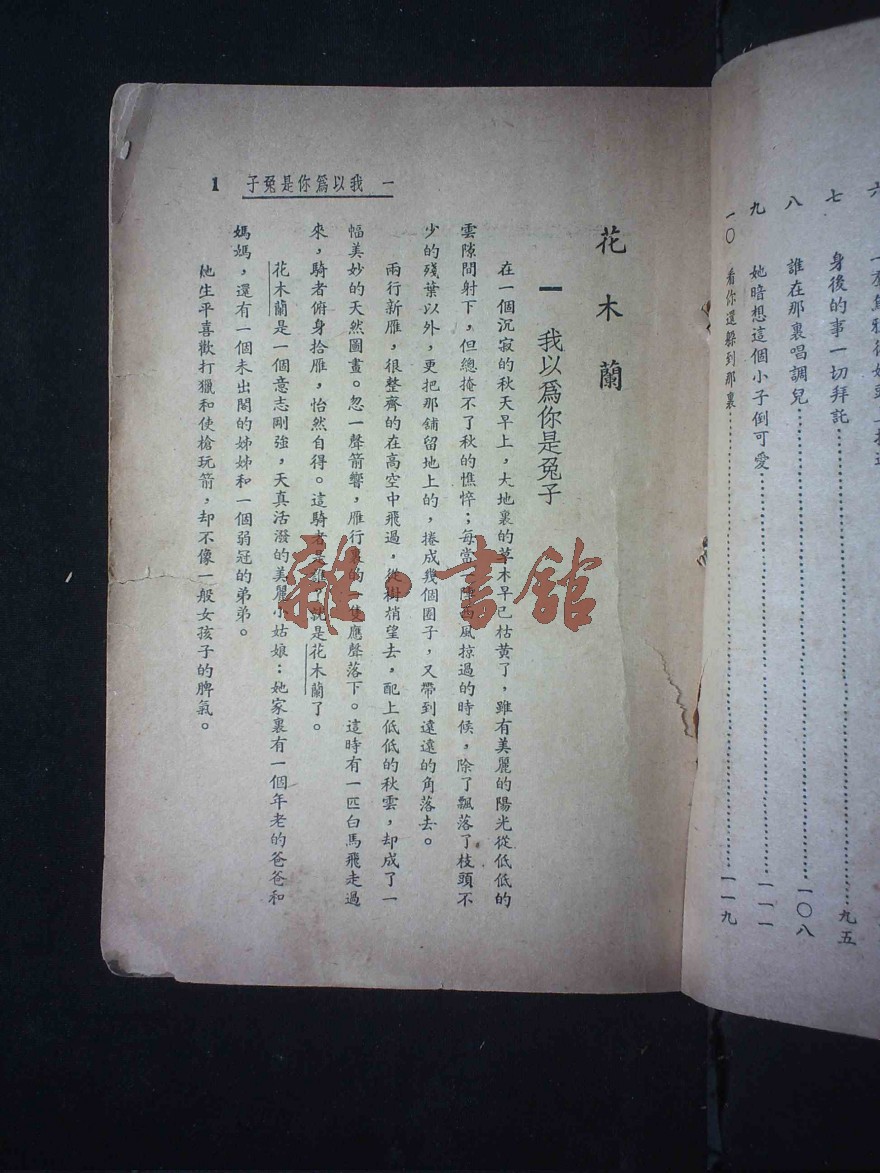 身後的事一切拜託……九五
七
誰在那裏唱調兒……一〇八
八
她暗想這個小子倒可愛……一一一
九
看你還躲到那裏……一一九
一〇
花木蘭
一 我以爲你是兔子
在一個沉寂的秋天早上，大地裏的草木早已枯黃了，雖有美麗的陽光從低低的
雲隙間射下，但總掩不了秋的憔悴；每當一陣西風掠過的時候，除了飄落了枝頭不
少的殘葉以外，更把那舖留地上的，捲成幾個圈子，又帶到遠遠的角落去。
兩行新雁，很整齊的在高空中飛過，從樹梢望去，配上低低的秋雲，却成了一
幅美妙的天然圖畫。忽一聲箭響，雁行裏的一隻應聲落下。這時有一匹白馬飛走過
來，騎者俯身拾雁，怡然自得。這騎者是誰，就是花木蘭了。
花木蘭是一個意志剛強，天真活潑的美麗小姑娘；她家裏有一個年老的爸爸和
媽媽，還有一個未出閣的姊姊和一個弱冠的弟弟。
她生平喜歡打獵和使槍玩箭，却不像一般女孩子的脾氣。
子兔是你爲以我 一
1
雜·書館